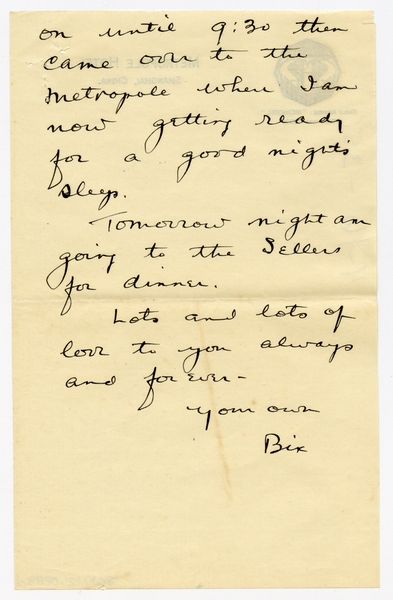 on until 9:30 then
came over to the
Metropole where I am
now getting ready
for a good night's
sleep.
Tomorrow night am
going to the Sellers
for dinner.
Lots and lots of
love to you always
and forever-
your own
Bix